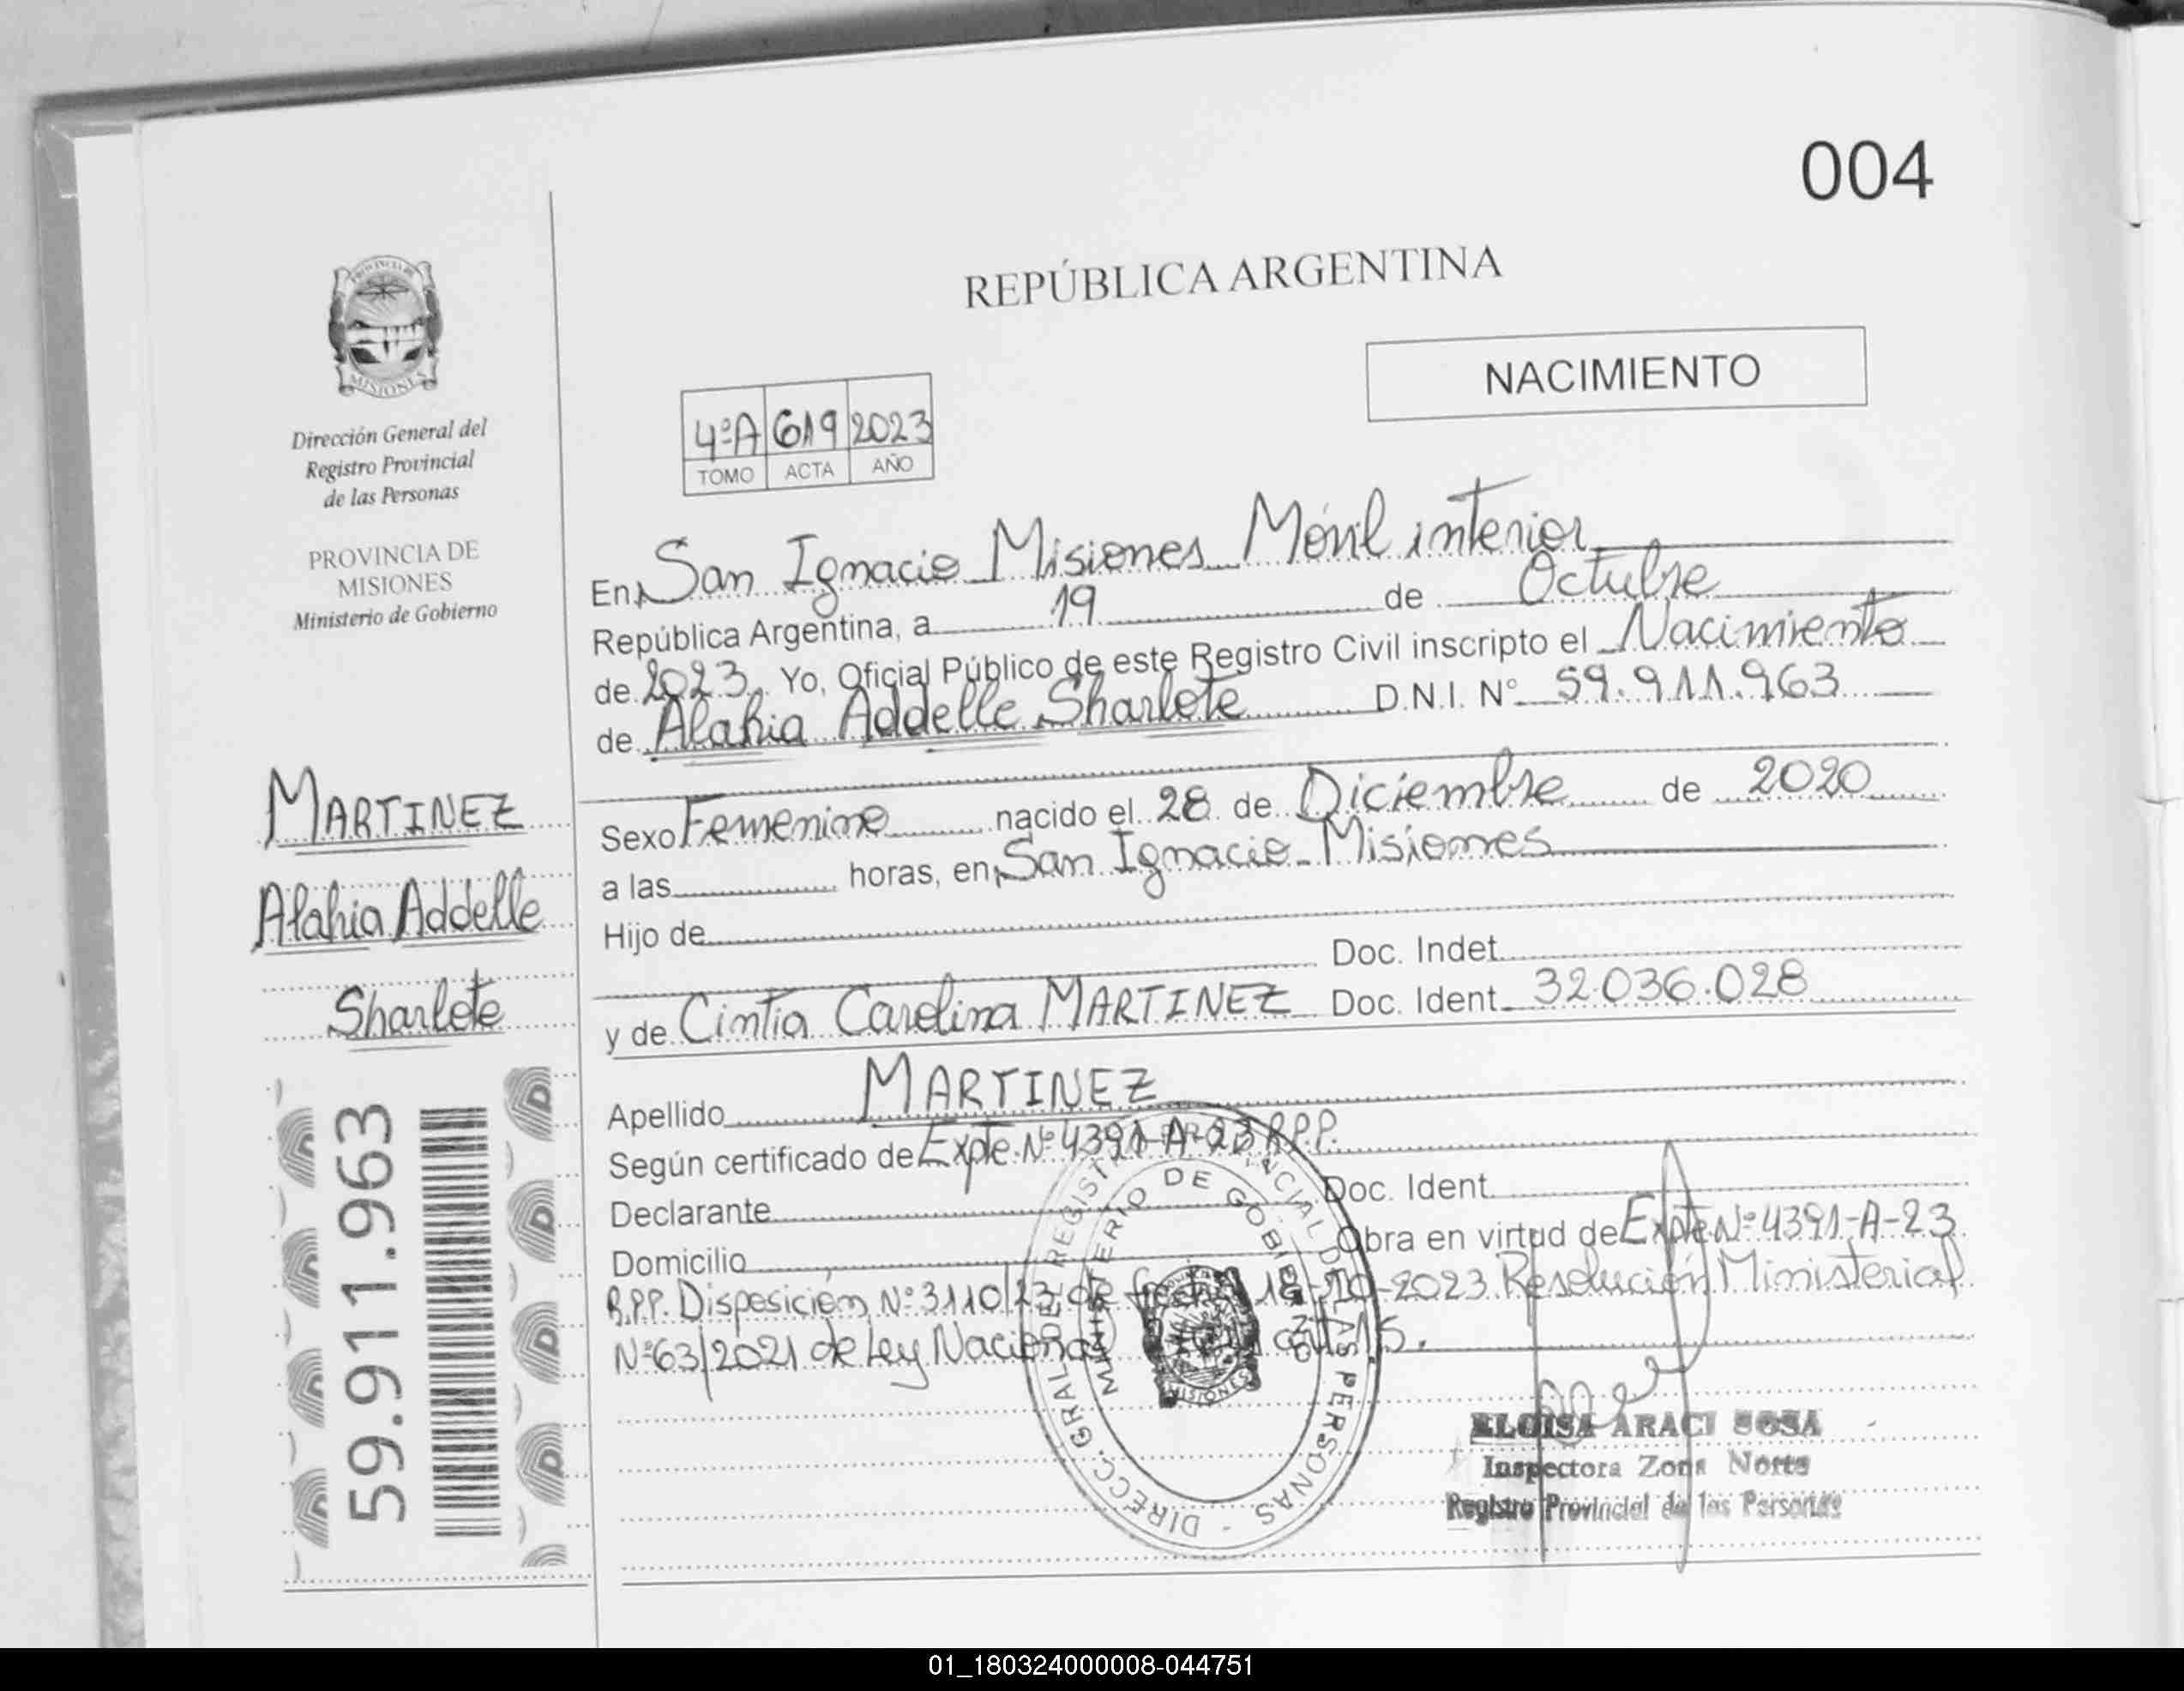 004
REPÚBLICA ARGENTINA
NACIMIENTO
PROVINCIA DE
MISIONES
Dirección General del
Registro Provincial
de las Personas
PROVINCIA DE
MISIONES
Ministerio de Gobierno
4ºA 619 2023
TOMO ACTA AÑO
En San Ignacio Misiones Móvil interior
República Argentina, a 19 de Octubre
de 2023. Yo, Oficial Público de este Registro Civil inscripto el Nacimiento
de Alahia Addelle Sharlote D.N.I. Nº 59.911.963
Sexo Femenino nacido el 28 de Diciembre de 2020
a las horas, en San Ignacio - Misiones
Hijo de
Doc. Indet.
y de Cintia Carolina MARTINEZ Doc. Ident. 32.036.028
Apellido MARTINEZ
Según certificado de Expte. Nº 4391-A-23 R.P.P.
Declarante Doc. Ident.
Domicilio Obra en virtud de Expte Nº 4391-A-23
R.P.P. Disposición Nº 3110/23 de fecha 18-10-2023 Resolución Ministerial
Nº 63/2021 de Ley Nacional
MARTINEZ
Alahia Addelle
Sharlote
59.911.963
DIRECC. GRAL. DEL REGISTRO PROVINCIAL DE LAS PERSONAS -
MINISTERIO DE GOBIERNO
MISIONES
ELOISA ARACI SOSA
Inspectora Zona Norte
Registro Provincial de las Personas
01_180324000008-044751